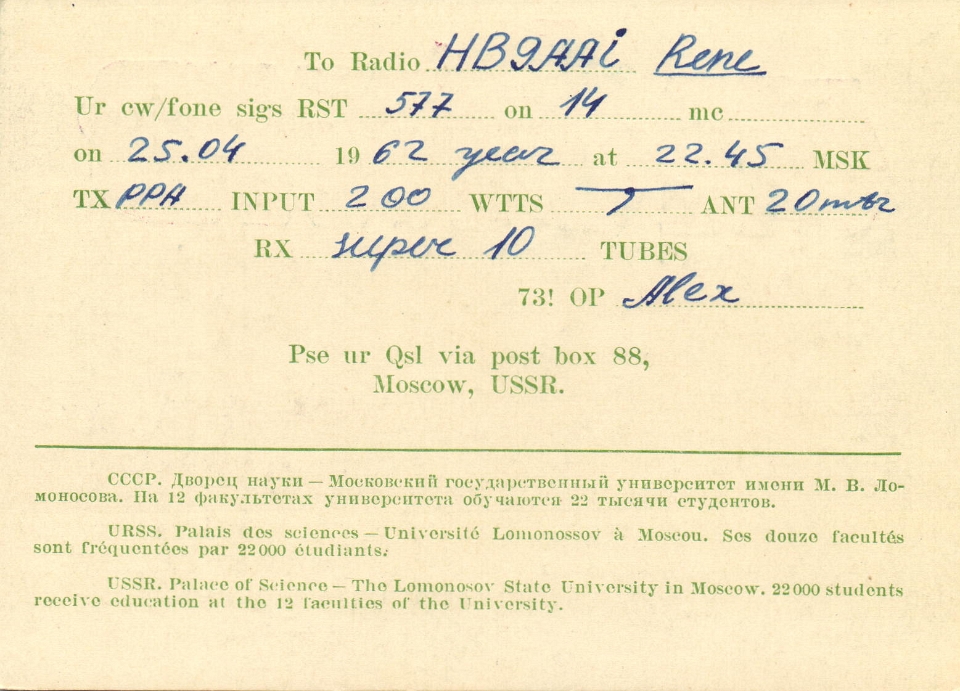 To Radio HB9AAi Rene
Ur cw/fone sigs RST 577 on 14 mc
on 25.04 1962 year at 22.45 MSK
TX PPA INPUT 200 WTTS ANT 20 mtr
RX super 10 TUBES
73! OP Alex
Pse ur Qsl via post box 88,
Moscow, USSR.
СССР. Дворец науки — Московский государственный университет имени М. В. Ло-
моносова. На 12 факультетах университета обучаются 22 тысячи студентов.
URSS. Palais des sciences — Université Lomonossov à Moscou. Ses douze facultés
sont fréquentées par 22 000 étudiants.
USSR. Palace of Science — The Lomonosov State University in Moscow. 22 000 students
receive education at the 12 faculties of the University.